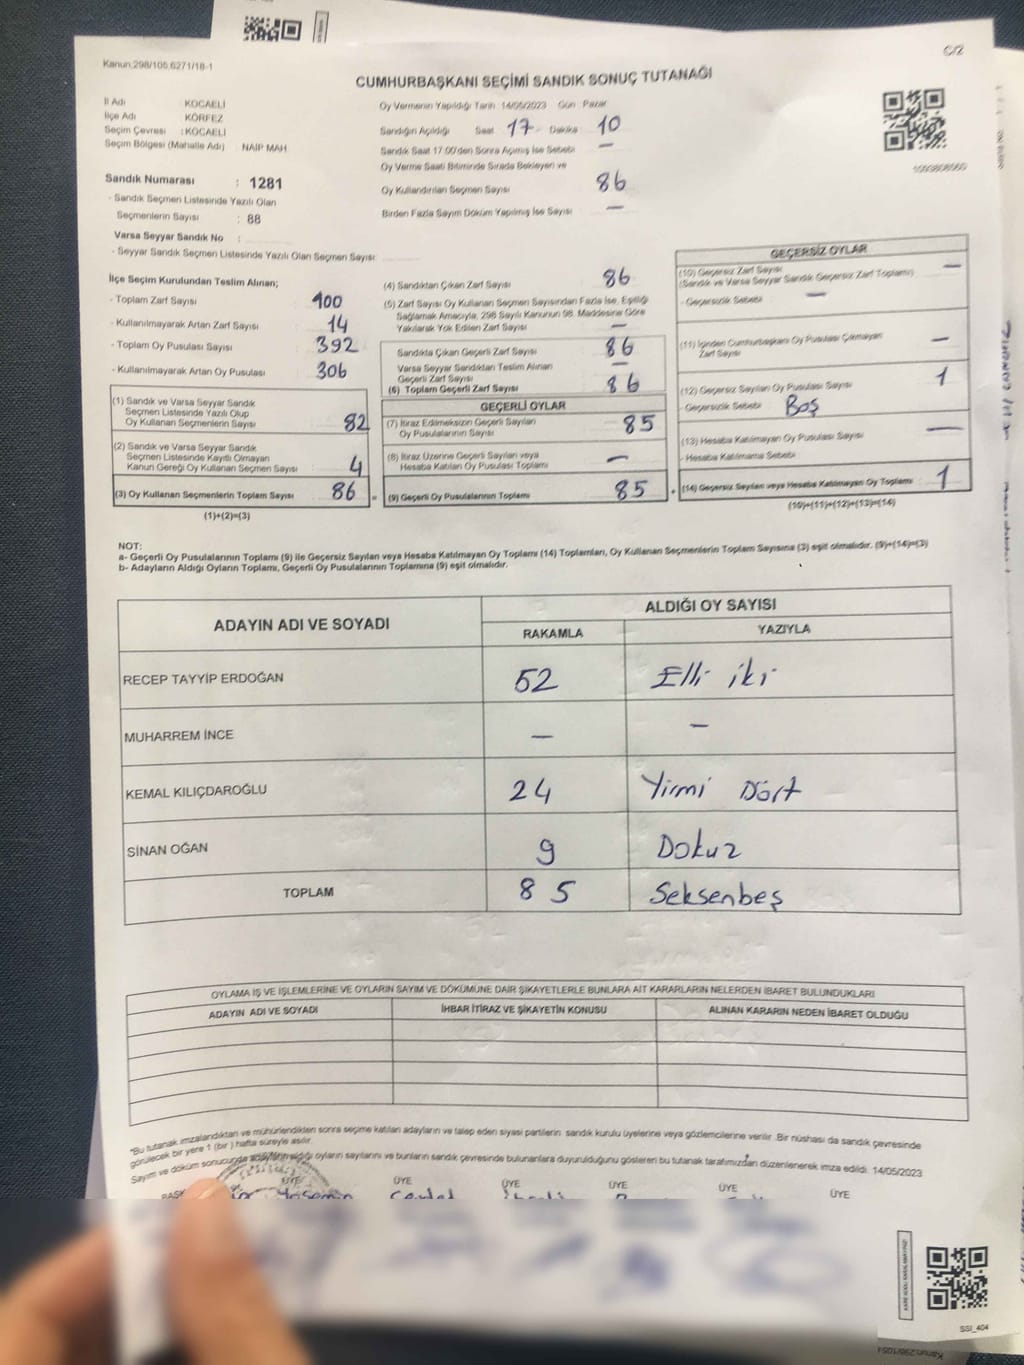 C/2
Kanun.298/105.6271/18-1
CUMHURBAŞKANI SEÇİMİ SANDIK SONUÇ TUTANAĞI
İl Adı KOCAELİ
İlçe Adı KÖRFEZ
Seçim Çevresi : KOCAELİ
Seçim Bölgesi (Mahalle Adı) NAIP MAH
Sandık Numarası : 1281
- Sandık Seçmen Listesinde Yazılı Olan
Seçmenlerin Sayısı : 88
Varsa Seyyar Sandık No :
- Seyyar Sandık Seçmen Listesinde Yazılı Olan Seçmen Sayısı:
Oy Vermenin Yapıldığı Tarih 14/05/2023 Gün Pazar
Sandığın Açıldığı Saat 17 Dakika 10
Sandık Saat 17:00'den Sonra Açılmış İse Sebebi —
Oy Verme Saati Bitiminde Sırada Bekleyen ve
Oy Kullandırılan Seçmen Sayısı 86
Birden Fazla Sayım Döküm Yapılmış İse Sayısı —
İlçe Seçim Kurulundan Teslim Alınan;
- Toplam Zarf Sayısı 400
- Kullanılmayarak Artan Zarf Sayısı 14
- Toplam Oy Pusulası Sayısı 392
- Kullanılmayarak Artan Oy Pusulası 306
(1) Sandık ve Varsa Seyyar Sandık
Seçmen Listesinde Yazılı Olup
Oy Kullanan Seçmenlerin Sayısı 82
(2) Sandık ve Varsa Seyyar Sandık
Seçmen Listesinde Kayıtlı Olmayan
Kanun Gereği Oy Kullanan Seçmen Sayısı 4
(3) Oy Kullanan Seçmenlerin Toplam Sayısı 86 =
(1)+(2)=(3)
(4) Sandıktan Çıkan Zarf Sayısı 86
(5) Zarf Sayısı Oy Kullanan Seçmen Sayısından Fazla İse, Eşitliği
Sağlamak Amacıyla, 298 Sayılı Kanunun 98. Maddesine Göre
Yakılarak Yok Edilen Zarf Sayısı —
Sandıkta Çıkan Geçerli Zarf Sayısı 86
Varsa Seyyar Sandıktan Teslim Alınan
Geçerli Zarf Sayısı —
(6) Toplam Geçerli Zarf Sayısı 86
GEÇERLİ OYLAR
(7) İtiraz Edilmeksizin Geçerli Sayılan
Oy Pusulalarının Sayısı 85
(8) İtiraz Üzerine Geçerli Sayılan veya
Hesaba Katılan Oy Pusulası Toplamı —
(9) Geçerli Oy Pusulalarının Toplamı 85 +
GEÇERSİZ OYLAR
(10) Geçersiz Zarf Sayısı —
(Sandık ve Varsa Seyyar Sandık Geçersiz Zarf Toplamı)
- Geçersizlik Sebebi —
(11) İçinden Cumhurbaşkanı Oy Pusulası Çıkmayan
Zarf Sayısı —
(12) Geçersiz Sayılan Oy Pusulası Sayısı 1
- Geçersizlik Sebebi Boş
(13) Hesaba Katılmayan Oy Pusulası Sayısı —
- Hesaba Katılmama Sebebi
(14) Geçersiz Sayılan veya Hesaba Katılmayan Oy Toplamı 1
(10)+(11)+(12)+(13)=(14)
NOT:
a- Geçerli Oy Pusulalarının Toplamı (9) ile Geçersiz Sayılan veya Hesaba Katılmayan Oy Toplamı (14) Toplamları, Oy Kullanan Seçmenlerin Toplam Sayısına (3) eşit olmalıdır. (9)+(14)=(3)
b- Adayların Aldığı Oyların Toplamı, Geçerli Oy Pusulalarının Toplamına (9) eşit olmalıdır.
ADAYIN ADI VE SOYADI ALDIĞI OY SAYISI
RAKAMLA YAZIYLA
RECEP TAYYİP ERDOĞAN 52 Elli iki
MUHARREM İNCE — —
KEMAL KILIÇDAROĞLU 24 Yirmi Dört
SİNAN OĞAN 9 Dokuz
TOPLAM 85 Seksenbeş
OYLAMA İŞ VE İŞLEMLERİNE VE OYLARIN SAYIM VE DÖKÜMÜNE DAİR ŞİKAYETLERLE BUNLARA AİT KARARLARIN NELERDEN İBARET BULUNDUKLARI
ADAYIN ADI VE SOYADI İHBAR İTİRAZ VE ŞİKAYETİN KONUSU ALINAN KARARIN NEDEN İBARET OLDUĞU
"Bu tutanak imzalandıktan ve mühürlendikten sonra seçime katılan adayların ve talep eden siyasi partilerin sandık kurulu üyelerine veya gözlemcilerine verilir. Bir nüshası da sandık çevresinde
görülecek bir yere 1 (bir) hafta süreyle asılır.
Sayım ve döküm sonucunda adayların aldığı oyların sayılarını ve bunların sandık çevresinde bulunanlara duyurulduğunu gösteren bu tutanak tarafımızdan düzenlenerek imza edildi. 14/05/2023
ÜYE ÜYE ÜYE ÜYE ÜYE ÜYE
SSI_404